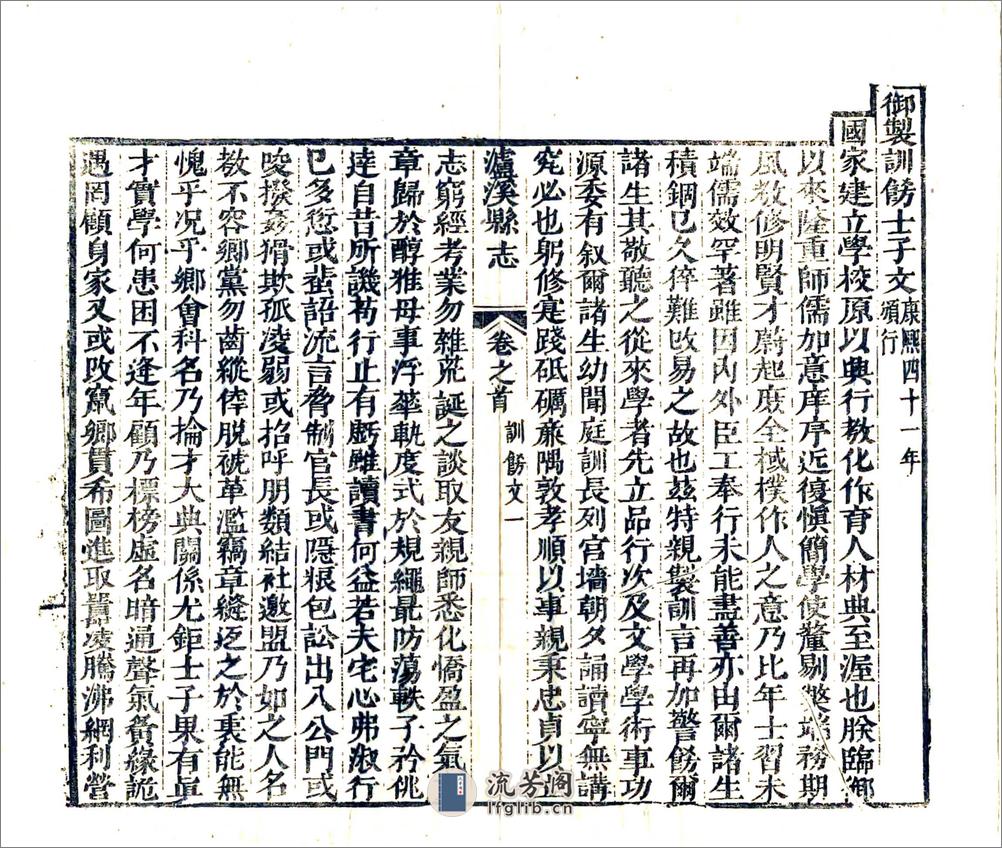 御製訓飭士子文康熙四十一年
頒行
國家建立學校原以興行教化作育人材典至渥也朕臨御
以來隆重師儒加意庠序近復慎簡學使釐剔弊端務期
風教修明賢才蔚起庶㡬棫樸作人之意乃比年士習未
端儒效罕著雖因内外臣工奉行未能盡善亦由爾諸生
積錮已久猝難改易之故也兹特親製訓言再加警飭爾
諸生其敬聽之從來學者先立品行次及文學學術事功
源委有叙爾諸生幼聞庭訓長列宮墻朝夕誦讀寧無講
究必也躬修寔踐砥礪亷隅敦孝順以事親秉忠貞以立
瀘溪縣志
卷之首
訓飭文一
志窮經考業勿雜荒誕之談取友親師悉化憍盈之氣文
章歸於醇雅毋事浮華軌度式於規繩最防蕩軼子衿佻
達自昔所譏苟行止有虧雖讀書何益若夫宅心弗淑行
已多愆或蜚語流言脅制官長或隱粮包訟出入公門或
唆撥姦猾欺孤凌弱或招呼朋類結社邀盟乃如之人名
教不容鄉黨勿齒縱倖脱褫革濫竊章縫返之於衷能無
愧乎况乎鄉會科名乃掄才大典關係尤鉅士子果有真
才實學何患困不逢年顧乃標榜虛名暗通聲氣夤緣詭
遇罔顧身家又或改竄鄉貫希圖進取囂凌騰沸網利營
流芳阁
lfglib.cn